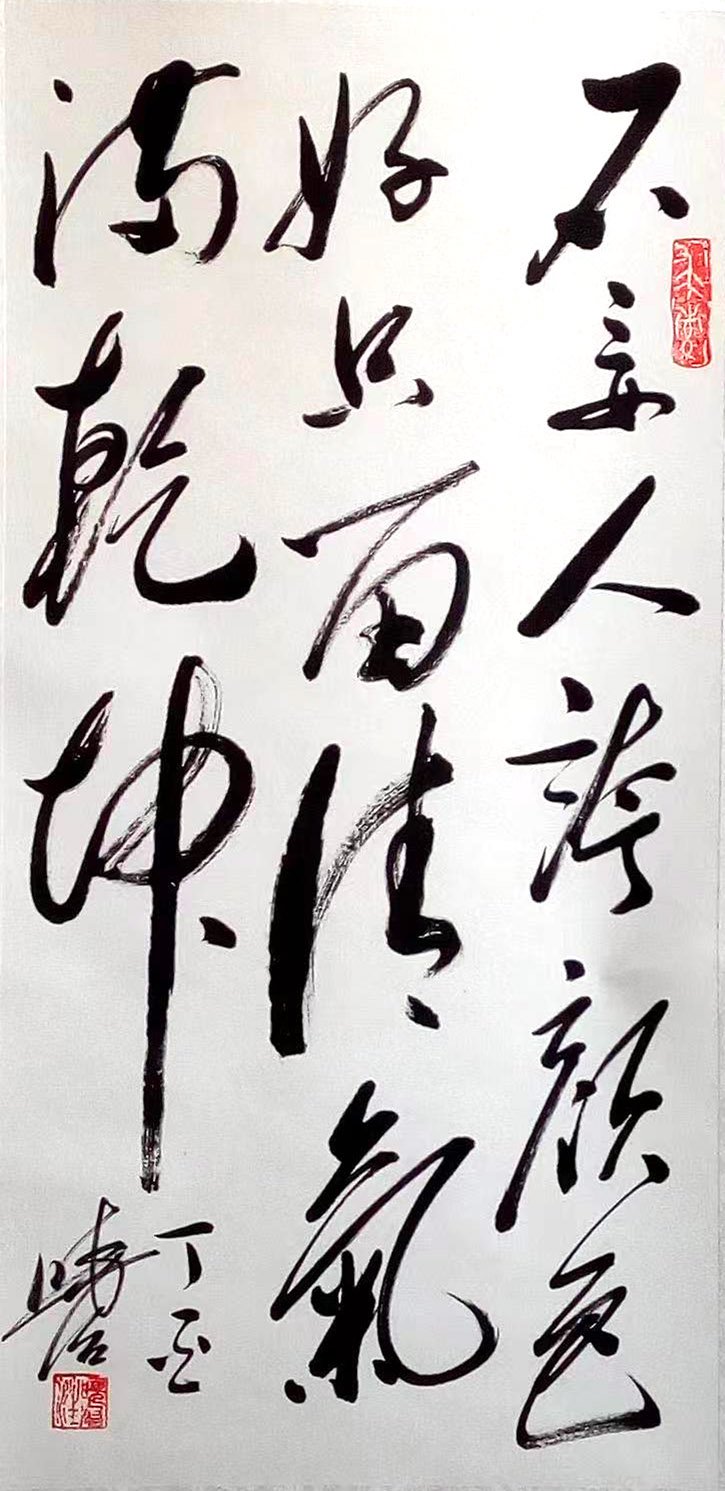 不要人誇顏色
好只留清氣
滿乾坤
丁酉